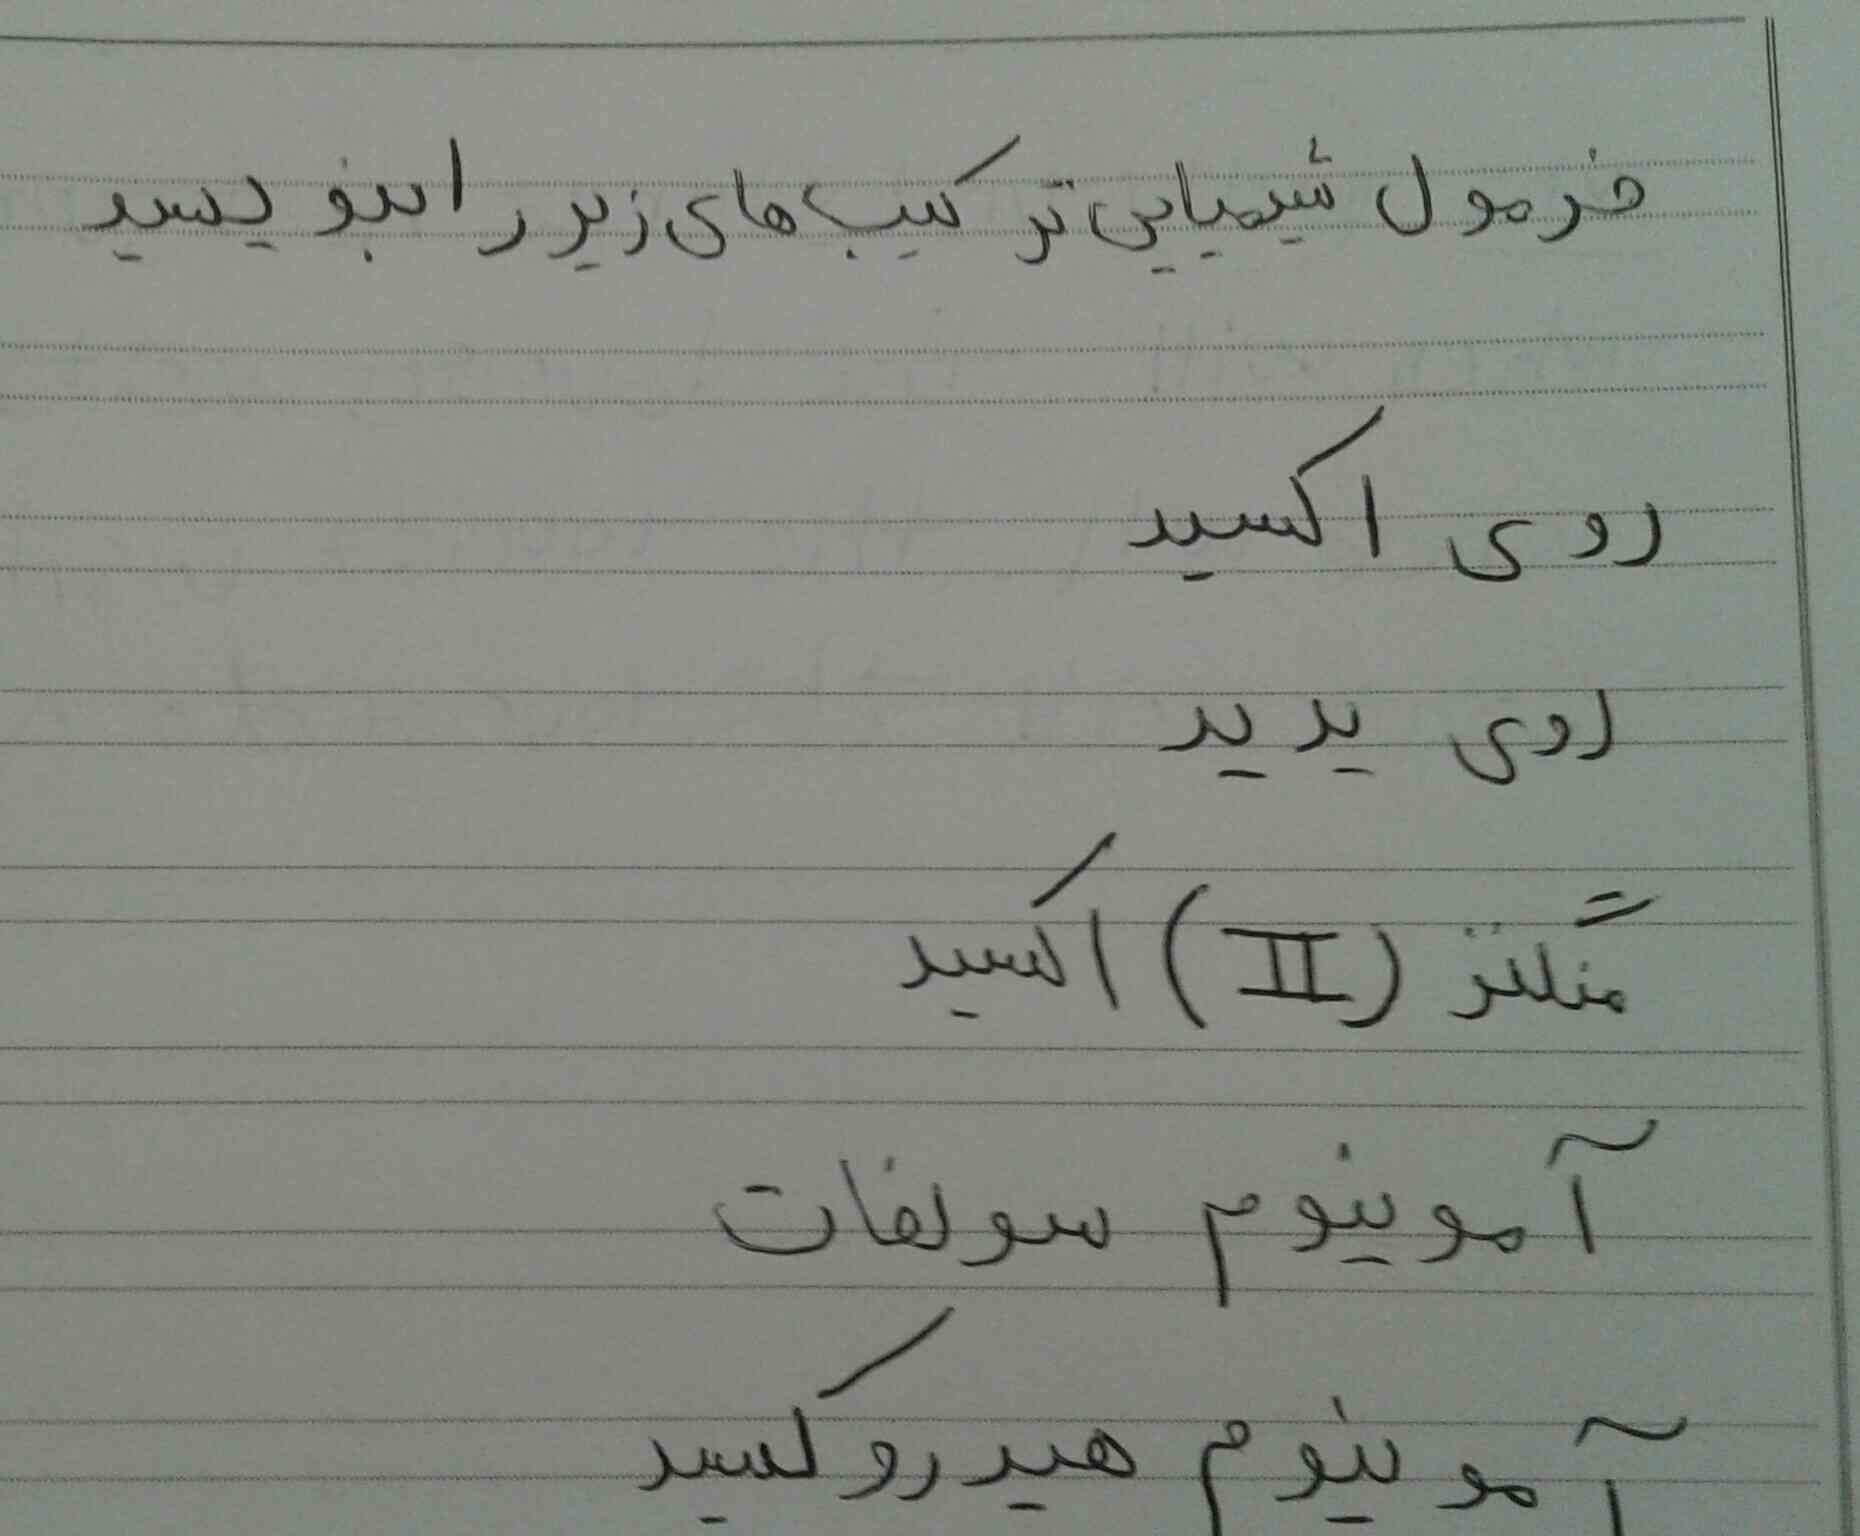 فرمول شیمیایی ترکیب های زیر را بنویسید
روی اکسید
روی یدید
منگنز (II) اکسید
آمونیوم سولفات
آمونیوم هیدروکسید